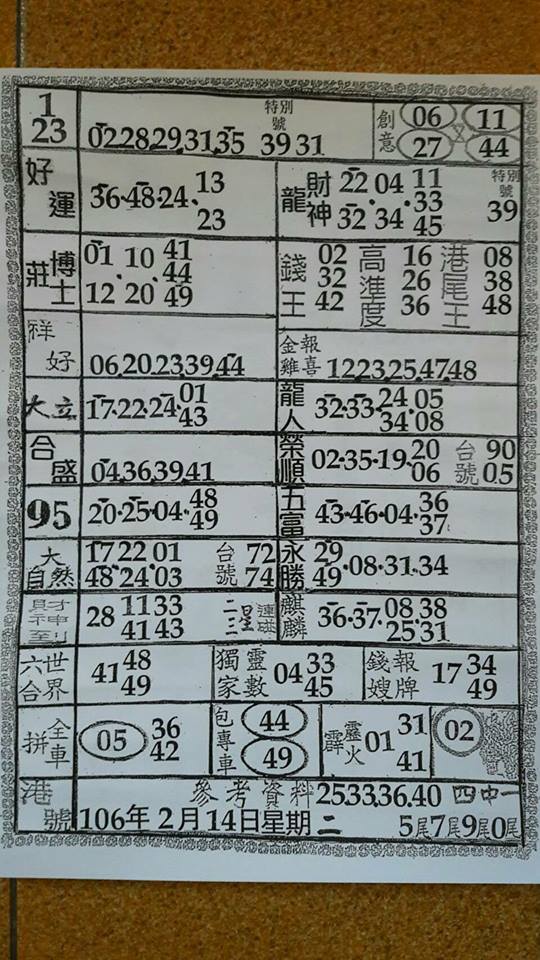 1
23
02 28 29 31 35 特別號 39 31
創意 06 11 又 27 44
好運 36·48·24· 13 23
龍 財神 22 04 11 特別號
32 34 33 45 39
莊博士 01 10 41 44
12 20 49
錢王 02 32 42
高進度 16 26 36
港尾王 08 38 48
祥好 06.20.23.39.44
金雞報喜 12.23.25.47.48
大立 17·22·24· 01 43
龍人 32·33· 24· 05
34· 08
合盛 04.36.39.41
榮順 02·35·19· 20 06 台號 90 05
95 20·25·04· 48 49
五富 43·46·04· 36 37
大自然 17 22 01 台號 72
48 24 03 74
永勝 29 49 ·08·31·34
財神到 28 11 33 二三星連碰
41 43
麒麟 36·37· 08 38
25 31
六合世界 41 48 49
獨家靈數 04 33 45
錢嫂報牌 17 34 49
全車拼 05 36 42
包專車 44 49
霹靂火 01 31 41
02
港號 參考資料 25 33 36 40 四中一
106年2月14日星期二 5尾7尾9尾0尾